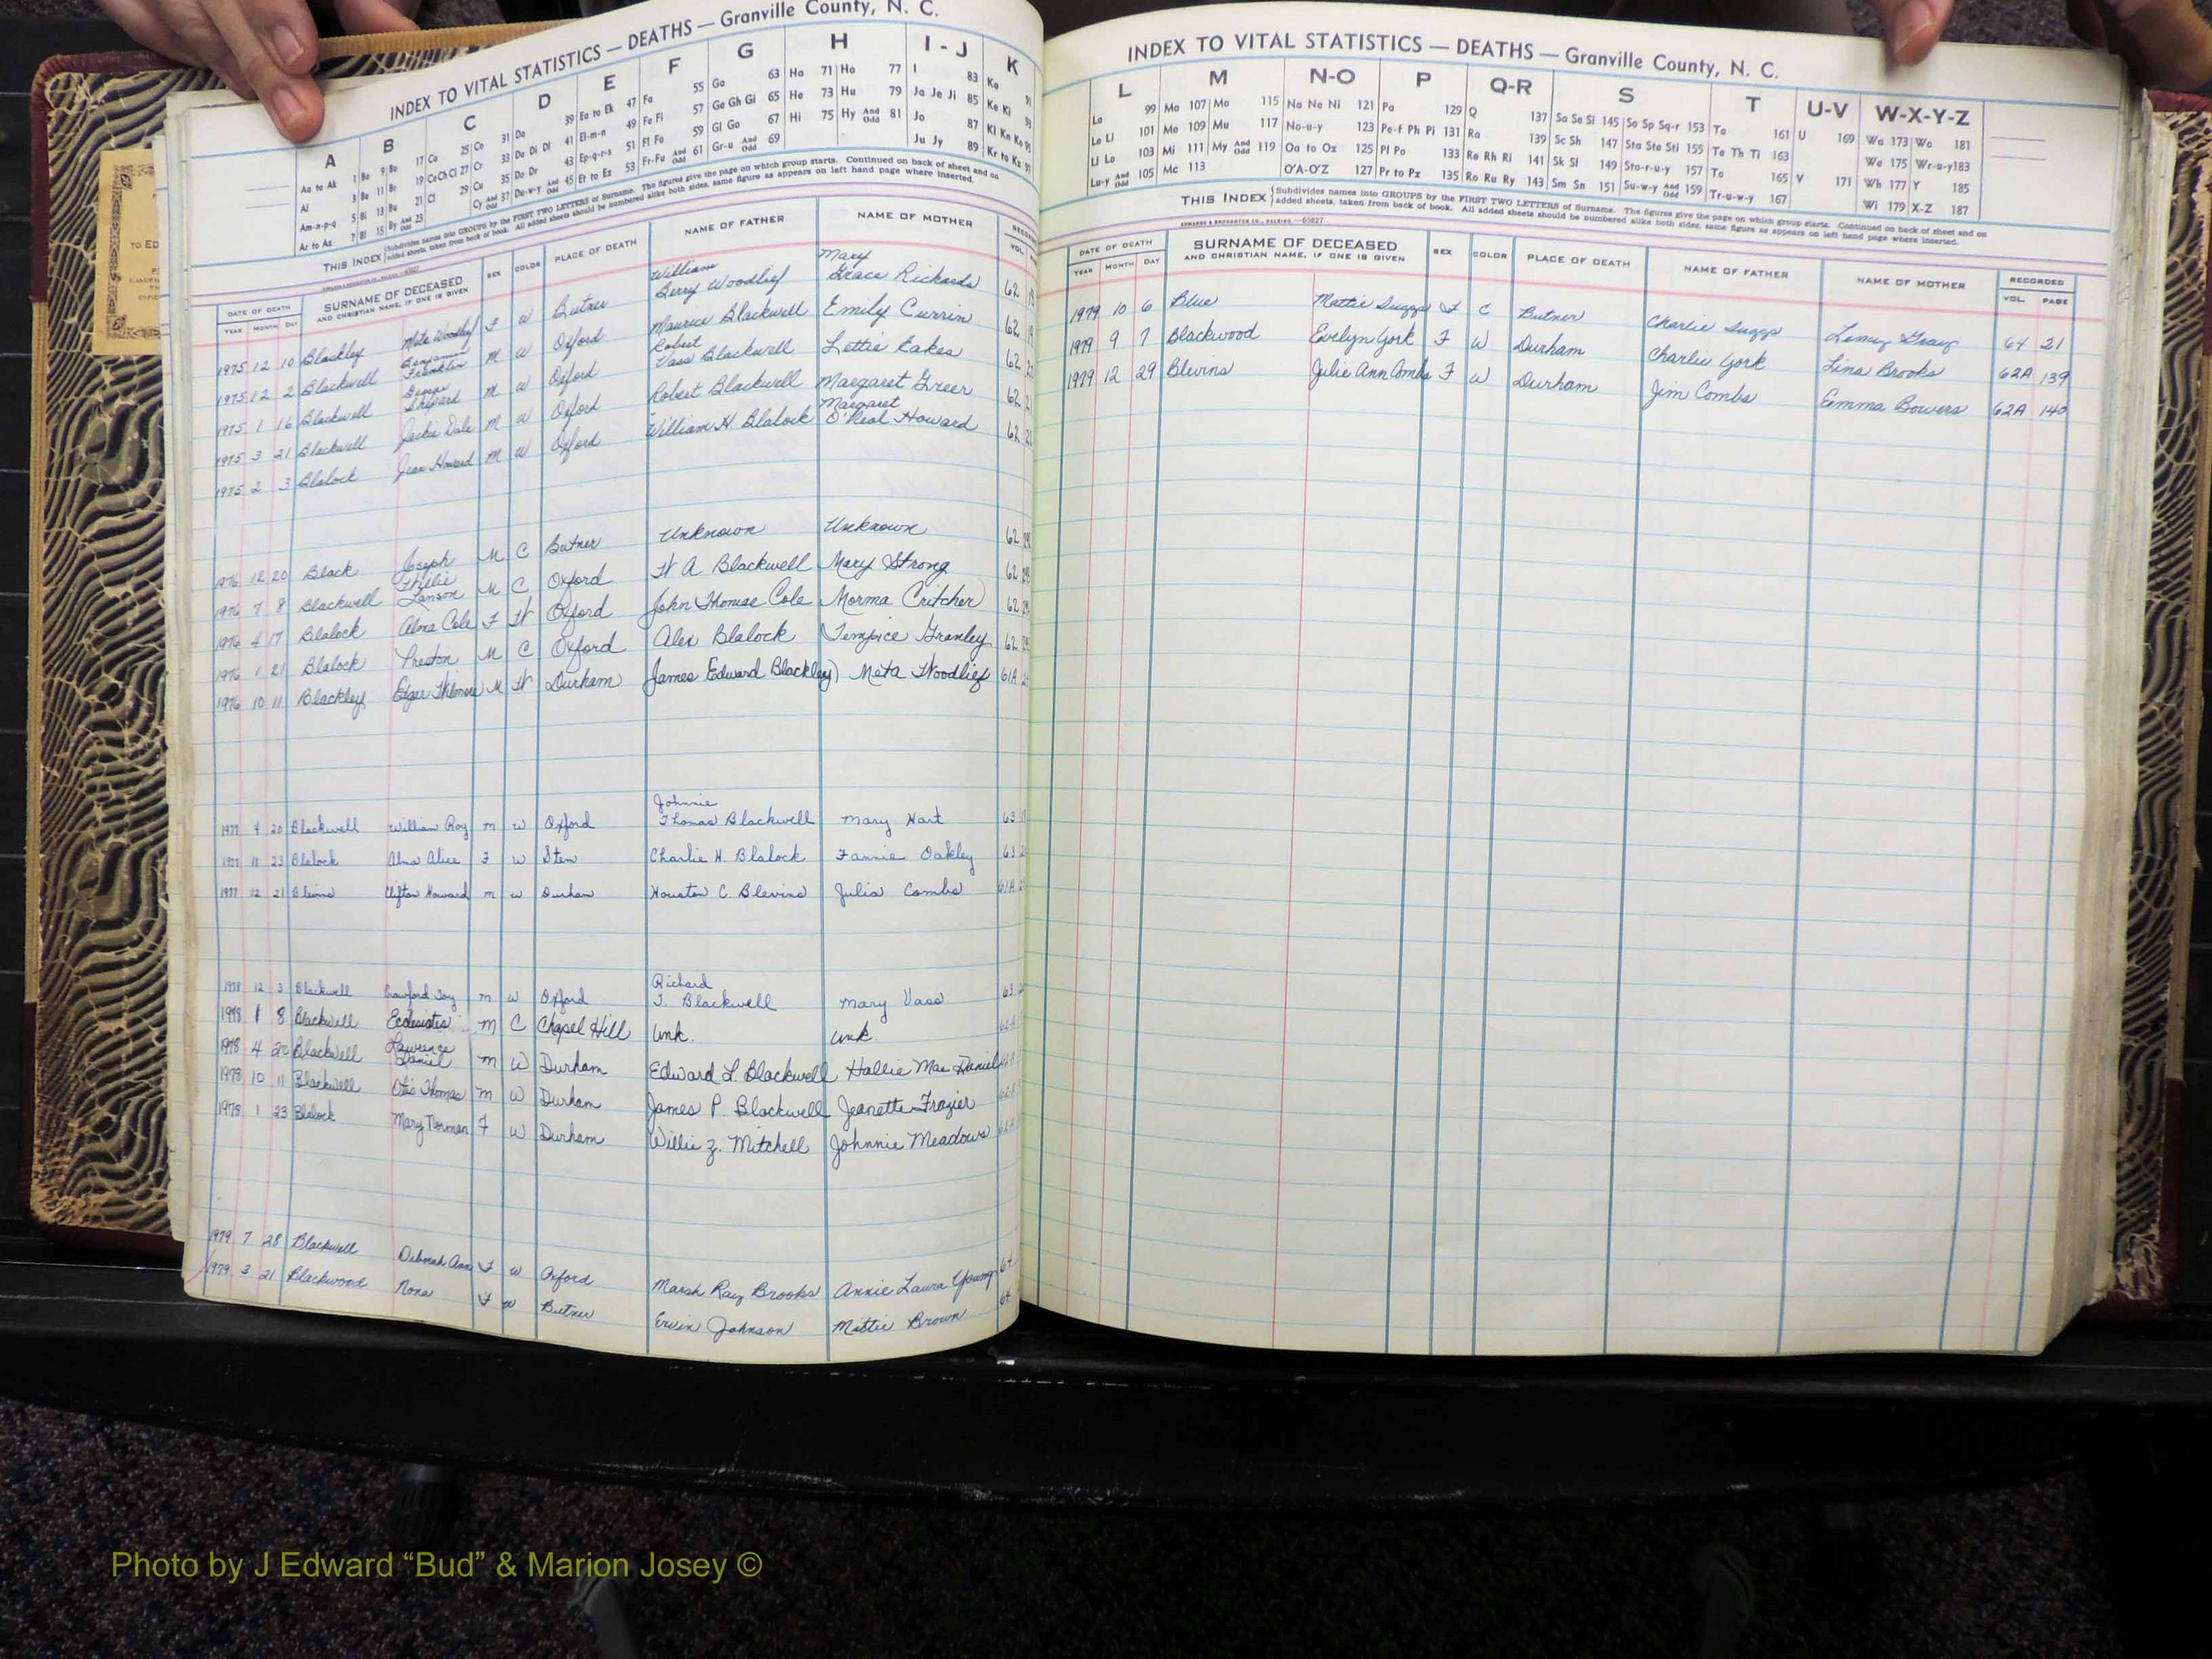 INDEX TO VITAL STATISTICS — DEATHS — Granville County, N. C.
A B C D E F G H I-J K
Aa to Ak 1 Ba 9 Bo 17 Ca 25 Co 31 Da 39 Ea to Ek 47 Fa 55 Ga 63 Ha 71 Ho 77 I 83 Ka 91
Al 3 Be 11 Br 19 Ce Ch Ci 27 Cr 33 De Di Dl 41 El-m-n 49 Fe Fi 57 Ge Gh Gi 65 He 73 Hu 79 Ja Je Ji 85 Ke Ki 93
Am-n-p-q 5 Bi 13 Bu 21 Cl 29 Cu 35 Do Dr 43 Ep-q-r-s 51 Fl Fo 59 Gl Go 67 Hi 75 Hy And Odd 81 Jo 87 Kl Kn Ko 95
Ar to Az 7 Bl 15 By And Odd 23 Cy And Odd 37 Du-w-y And Odd 45 Et to Ez 53 Fr-Fu And Odd 61 Gr-u And Odd 69 Ju Jy 89 Kr to Kz 97
THIS INDEX Subdivides names into GROUPS by the FIRST TWO LETTERS of Surname. The figures give the page on which group starts. Continued on back of sheet and on
added sheets, taken from back of book. All added sheets should be numbered alike both sides, same figure as appears on left hand page where inserted.
DATE OF DEATH SURNAME OF DECEASED SEX COLOR PLACE OF DEATH NAME OF FATHER NAME OF MOTHER
YEAR MONTH DAY AND CHRISTIAN NAME, IF ONE IS GIVEN VOL.
1975 12 10 Blackley Meta Woodlief F W Butner William Berry Woodlief Mary Grace Rickards 62
1975 12 2 Blackwell Benjamin Franklin M W Oxford Maurice Blackwell Emily Currin 62
1975 1 16 Blackwell George Shepard M W Oxford Robert Vass Blackwell Lettie Eakes 62
1975 3 21 Blackwell Jackie Dale M W Oxford Robert Blackwell Margaret Greer 62
1975 2 3 Blalock Jean Howard M W Oxford William H Blalock Margaret O'Neal Howard 62
1976 12 20 Black Joseph M C Butner Unknown Unknown 62
1976 7 8 Blackwell Lanson M C Oxford W A Blackwell Mary Strong 62
1976 4 17 Blalock Alma Cole F W Oxford John Thomas Cole Norma Critcher 62
1976 1 21 Blalock Preston M C Oxford Alex Blalock Tempice Granley 62
1976 10 11 Blackley Edgar Thilmore M W Durham James Edward Blackley Meta Woodlief 61A
1977 4 20 Blackwell William Roy M W Oxford Johnnie Thomas Blackwell Mary Hart 63
1977 11 23 Blalock Alma Alice F W Stem Charlie H. Blalock Fannie Oakley 63
1977 12 21 Blevins Clifton Howard M W Durham Houston C. Blevins Julia Combs 61A
1978 12 3 Blackwell Crawford Toy M W Oxford Richard T. Blackwell Mary Vass 63
1978 1 8 Blackwell Ecclesiates M C Chapel Hill Unk. Unk. 62A
1978 4 20 Blackwell Lawrence Daniel M W Durham Edward L. Blackwell Hallie Mae Daniel 62A
1978 10 11 Blackwell Otis Thomas M W Durham James P. Blackwell Jeanette Frazier 62A
1978 1 23 Blalock Mary Norman F W Durham Willie Z. Mitchell Johnnie Meadows 62A
1979 7 28 Blackwell Deborah Ann F W Oxford Marsh Ray Brooks Annie Laura Young 64
1979 3 21 Blackwood Nona F W Butner Ervin Johnson Mittie Brown 64
INDEX TO VITAL STATISTICS — DEATHS — Granville County, N. C.
L M N-O P Q-R S T U-V W-X-Y-Z
La 99 Ma 107 Mo 115 Na Ne Ni 121 Pa 129 Q 137 Sa Se Si 145 So Sp Sq-r 153 Ta 161 U 169 Wa 173 Wo 181
Le Li 101 Me 109 Mu 117 No-u-y 123 Pe-f Ph Pi 131 Ra 139 Sc Sh 147 Sta Ste Sti 155 Te Th Ti 163 We 175 Wr-u-y 183
Ll Lo 103 Mi 111 My And Odd 119 Oa to Oz 125 Pl Po 133 Re Rh Ri 141 Sk Sl 149 Sto-r-u-y 157 To 165 V 171 Wh 177 Y 185
Lu-y And Odd 105 Mc 113 O'A-O'Z 127 Pr to Pz 135 Ro Ru Ry 143 Sm Sn 151 Su-w-y And Odd 159 Tr-u-w-y 167 Wi 179 X-Z 187
THIS INDEX Subdivides names into GROUPS by the FIRST TWO LETTERS of Surname. The figures give the page on which group starts. Continued on back of sheet and on
added sheets, taken from back of book. All added sheets should be numbered alike both sides, same figure as appears on left hand page where inserted.
EDWARDS & BROUGHTON CO., RALEIGH —65827
DATE OF DEATH SURNAME OF DECEASED SEX COLOR PLACE OF DEATH NAME OF FATHER NAME OF MOTHER RECORDED
YEAR MONTH DAY AND CHRISTIAN NAME, IF ONE IS GIVEN VOL. PAGE
1979 10 6 Blue Mattie Suggs F C Butner Charlie Suggs Gray 64 21
1979 9 7 Blackwood Evelyn York F W Durham Charlie York Lina Brooks 62A 139
1979 12 29 Blevins Julie Ann Combs F W Durham Jim Combs Emma Bowers 62A 140
Photo by J Edward “Bud” & Marion Josey ©